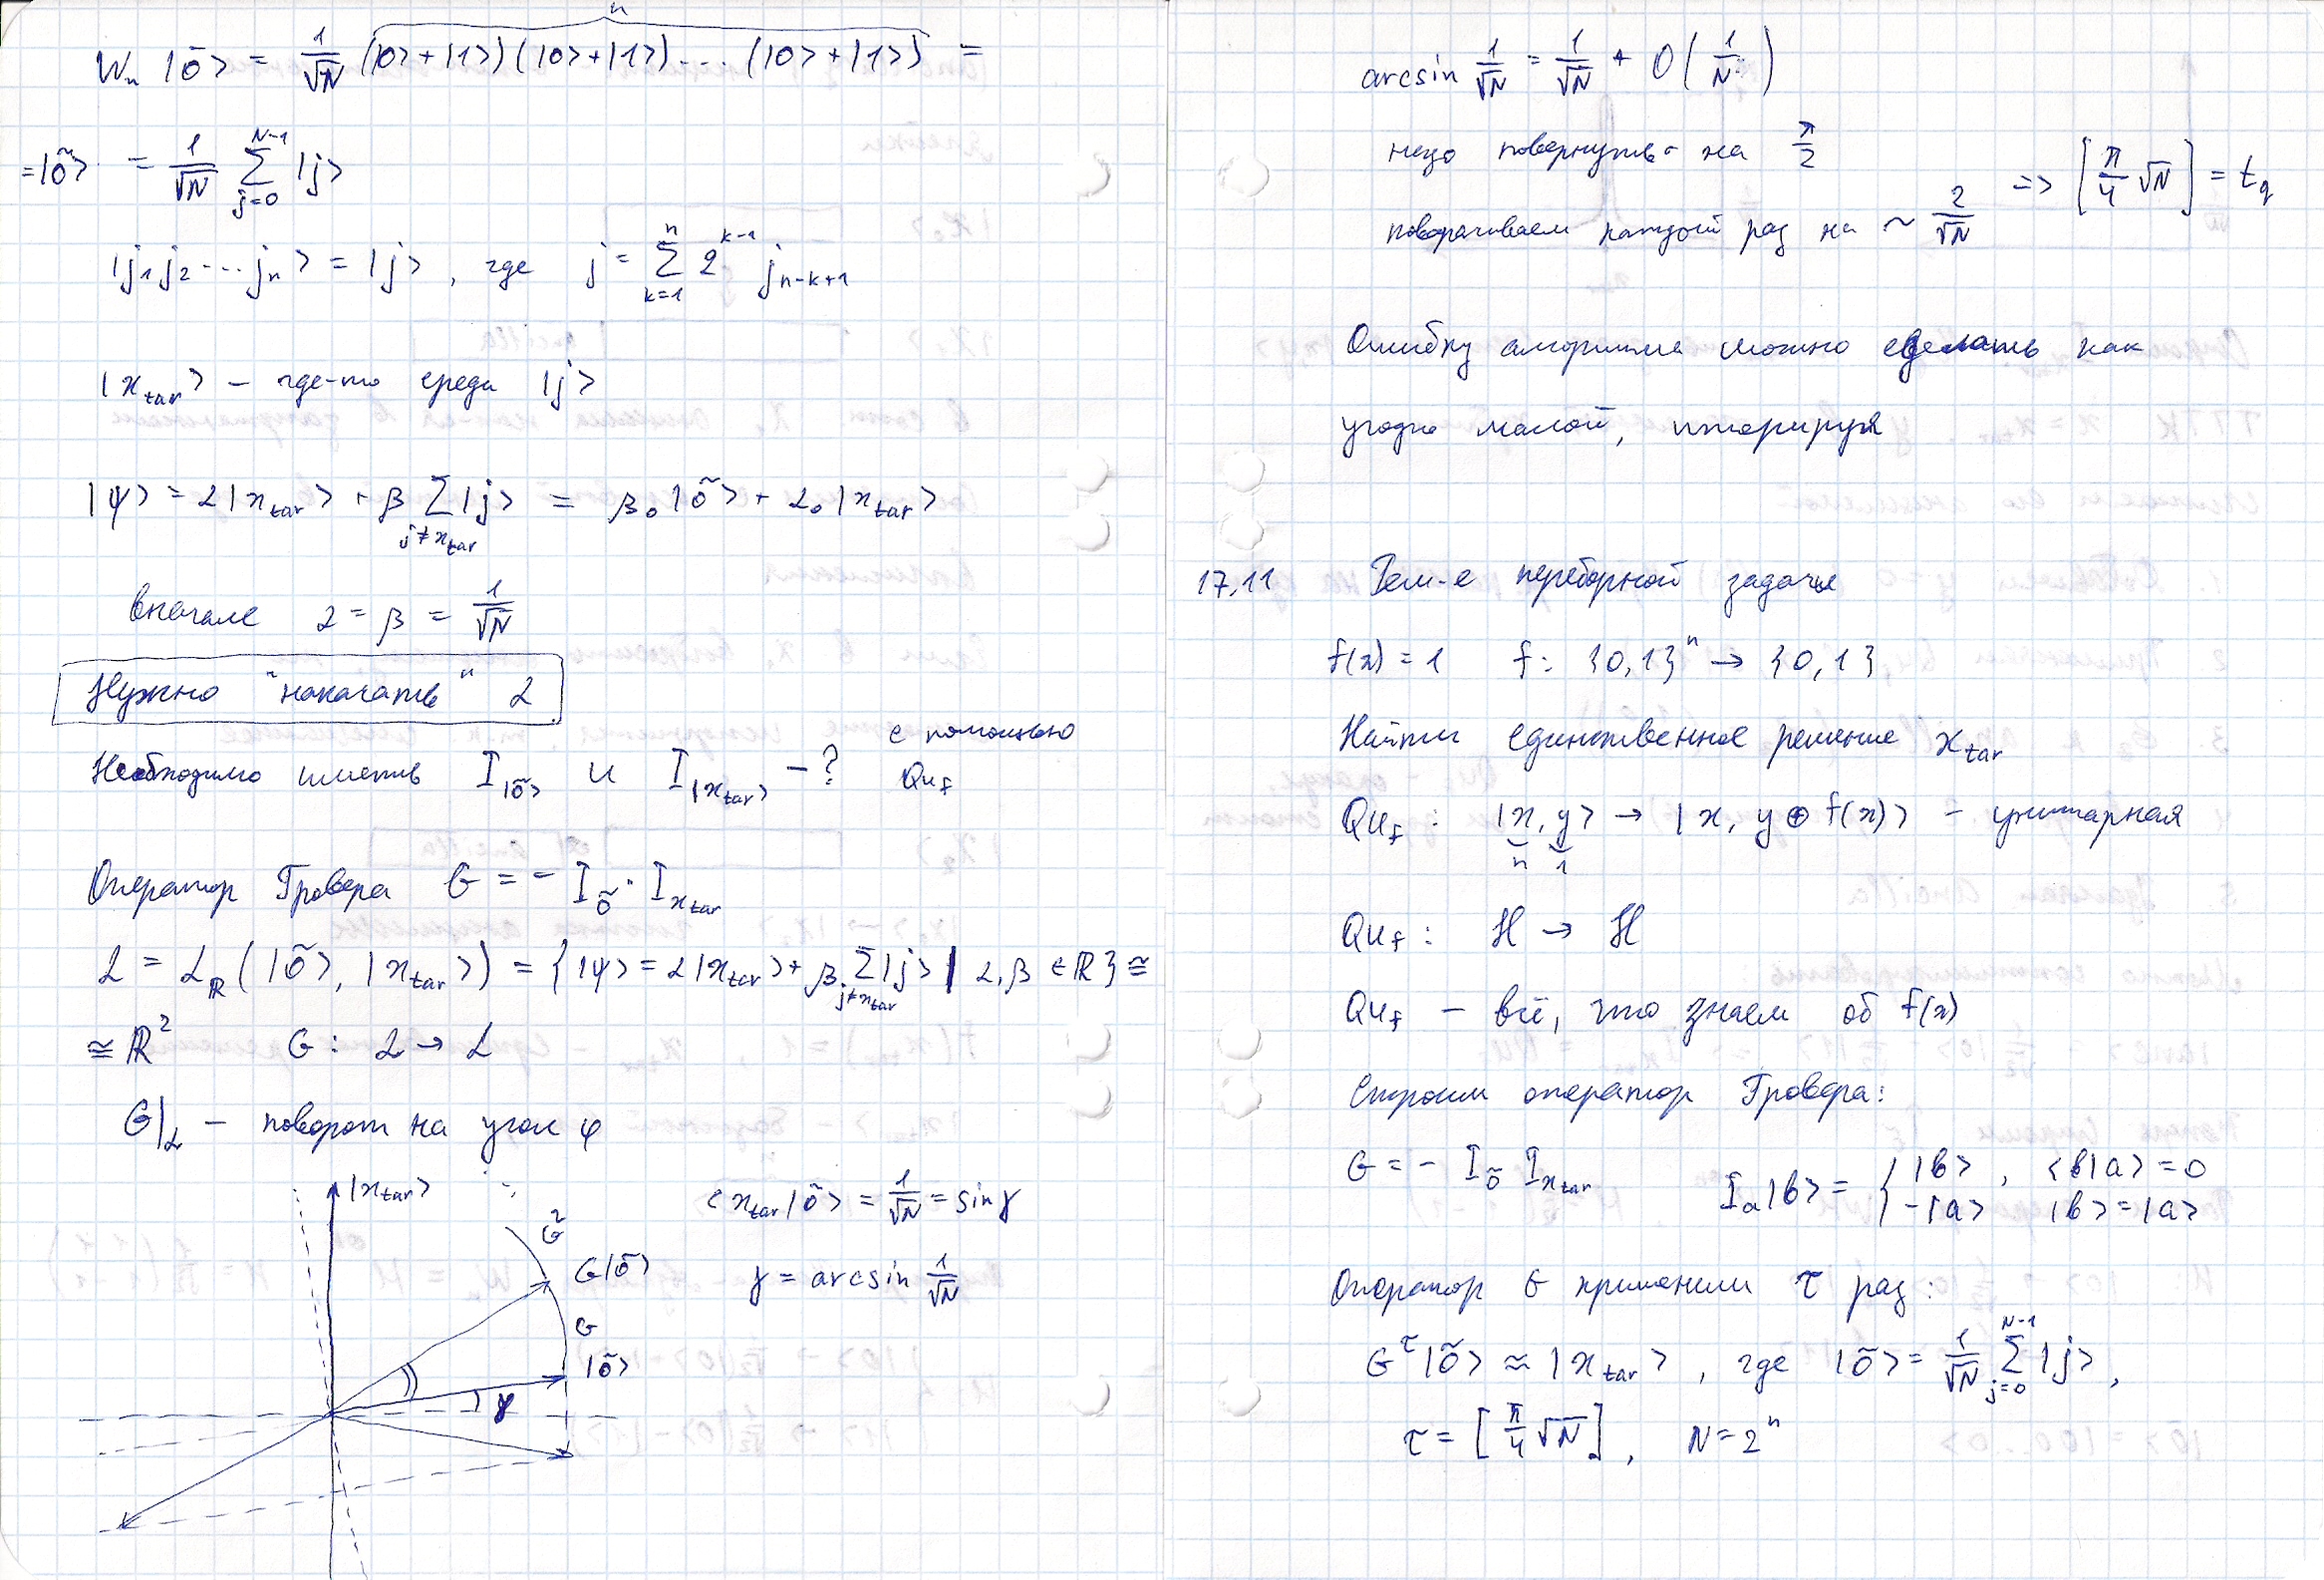 Wₙ |0̄> = 1/√N (|0>+|1>)(|0>+|1>)...(|0>+|1>) =
n
= |0̃> = 1/√N ∑_{j=0}^{N-1} |j>
|j₁j₂...jₙ> = |j>, где j = ∑_{k=1}^{n} 2^{k-1} j_{n-k+1}
|x_tar> – где-то среди |j>
|ψ> = α|x_tar> + β ∑_{j≠x_tar} |j> = β₀|0̃> + α₀|x_tar>
вначале α = β = 1/√N
Нужно "накачать" α
Необходимо иметь I_{|0̃>} и I_{|x_tar>} – ? с помощью Qu_f
Оператор Гровера G = – I_{0̃} · I_{x_tar}
L = L_ℝ(|0̃>, |x_tar>) = {|ψ> = α|x_tar> + β ∑_{j≠x_tar} |j> | α, β ∈ ℝ} ≅
≅ ℝ² G: L → L
G|_L – поворот на угол φ
|x_tar>
<x_tar|0̃> = 1/√N = sin γ
G²
G|0̃>
γ = arcsin 1/√N
G
|0̃>
γ
arcsin 1/√N = 1/√N + O(1/N)
надо повернуть на π/2
поворачиваем каждый раз на ~ 2/√N => [π/4 √N] = t_q
Ошибку алгоритма можно сделать как
угодно малой, итерируя
17.11 Реш-е переборной задачи
f(x) = 1 f: {0,1}ⁿ → {0,1}
Найти единственное решение x_tar
Qu_f : |x, y> → |x, y ⊕ f(x)> – унитарная
n 1
Qu_f : H → H
Qu_f – всё, что знаем об f(x)
Строим оператор Гровера:
G = – I_{0̃} I_{x_tar} I_a|b> = { |b>, <b|a> = 0
–|a> |b> = |a>
Оператор G применим τ раз:
G^τ|0̃> ≈ |x_tar>, где |0̃> = 1/√N ∑_{j=0}^{N-1} |j>,
τ = [π/4 √N], N = 2ⁿ